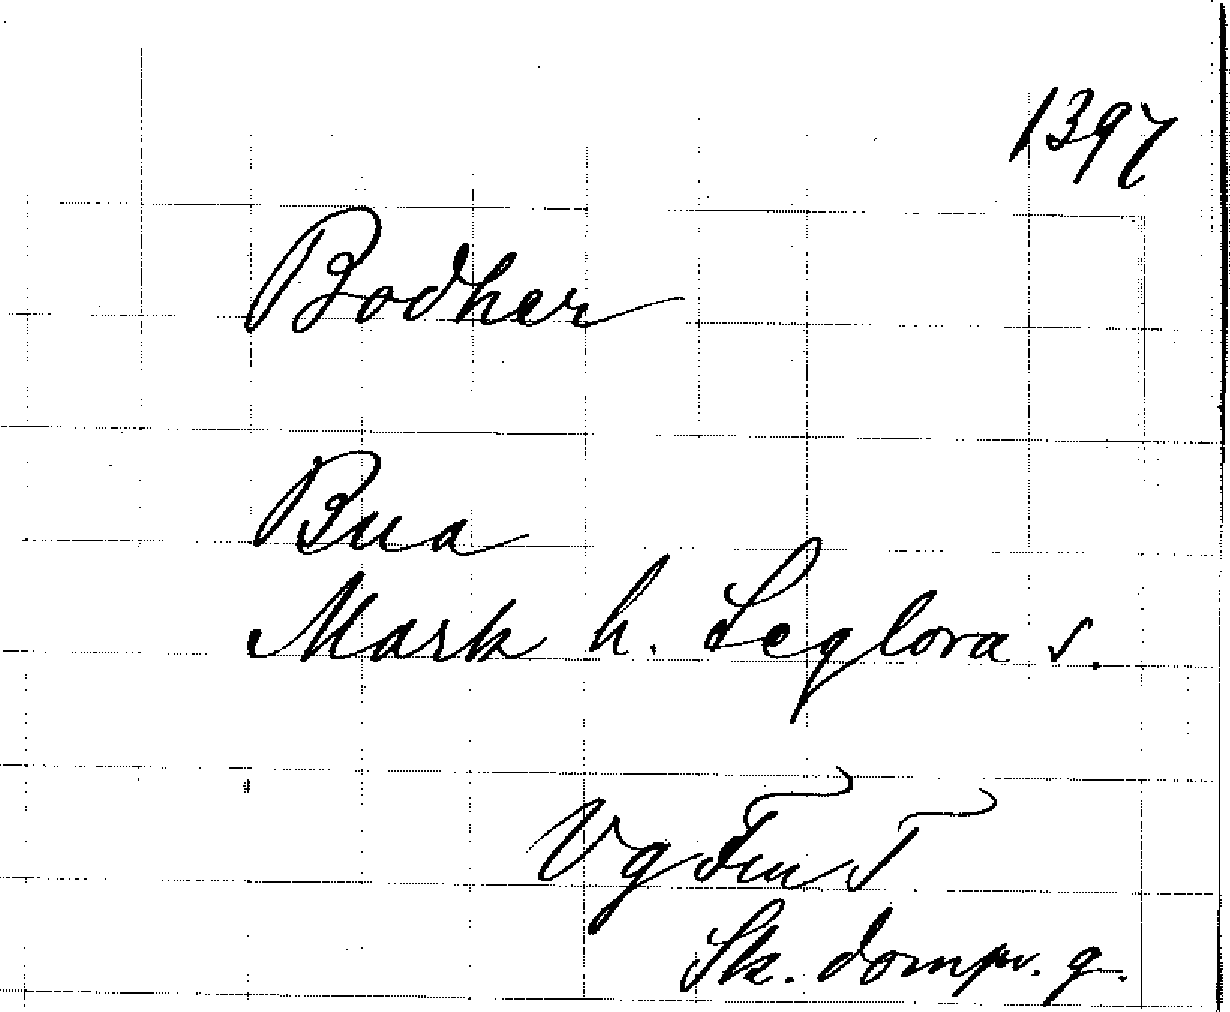 1397
Bodher
Bua
Mark h. Seglora s.
Vg Fm T
Sk. dompr. g.